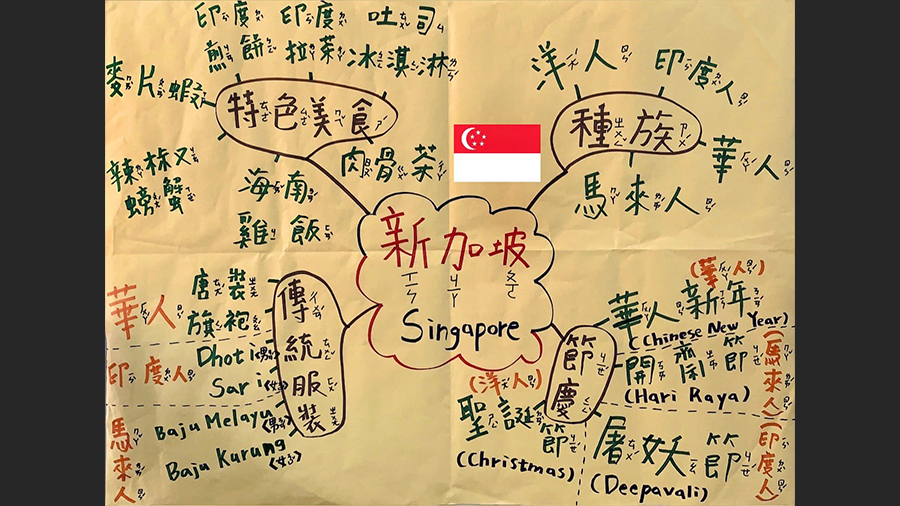 印度 印度 吐司
煎餅 拉茶 冰淇淋
麥片蝦
特色美食
辣椒
螃蟹
海南
雞飯
肉骨茶
洋人
印度人
種族
華人
馬來人
新加坡
Singapore
華人
唐裝
旗袍
傳統服裝
印度人
Dhoti (男)
Sari (女)
馬來人
Baju Melayu (男)
Baju Kurung (女)
節慶
(華人)
華人新年
(Chinese New Year)
開齋節
(Hari Raya)
(馬來人)
(洋人)
聖誕節
(Christmas)
屠妖節
(Deepavali)
(印度人)